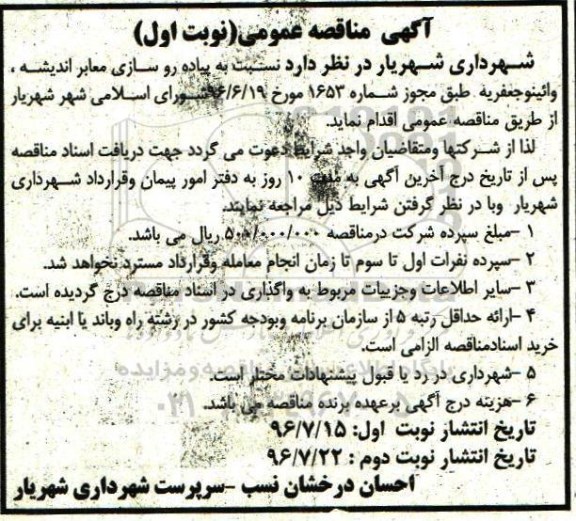 آگهی مناقصه عمومی(نوبت اول)
شهرداری شهریار در نظر دارد نسبت به پیاده رو سازی معابر اندیشه ،
وائینوجعفریه طبق مجوز شماره ۱۶۵۳ مورخ ۹۶/۶/۱۹ شورای اسلامی شهر شهریار
از طریق مناقصه عمومی اقدام نماید.
لذا از شرکتها ومتقاضیان واجد شرایط دعوت می گردد جهت دریافت اسناد مناقصه
پس از تاریخ درج آخرین آگهی به مدت ۱۰ روز به دفتر امور پیمان وقرارداد شهرداری
شهریار وبا در نظر گرفتن شرایط ذیل مراجعه نمایند.
۱ –مبلغ سپرده شرکت درمناقصه ۵۰۰/۰۰۰/۰۰۰ ریال می باشد.
۲ –سپرده نفرات اول تا سوم تا زمان انجام معامله وقرارداد مسترد نخواهد شد.
۳ –سایر اطلاعات وجزییات مربوط به واگذاری در اسناد مناقصه درج گردیده است.
۴ –ارائه حداقل رتبه ۵ از سازمان برنامه وبودجه کشور در رشته راه وباند یا ابنیه برای
خرید اسنادمناقصه الزامی است.
۵ –شهرداری در رد یا قبول پیشنهادات مختار است.
۶ –هزینه درج آگهی برعهده برنده مناقصه می باشد.
تاریخ انتشار نوبت اول: ۹۶/۷/۱۵
تاریخ انتشار نوبت دوم : ۹۶/۷/۲۲
احسان درخشان نسب –سرپرست شهرداری شهریار